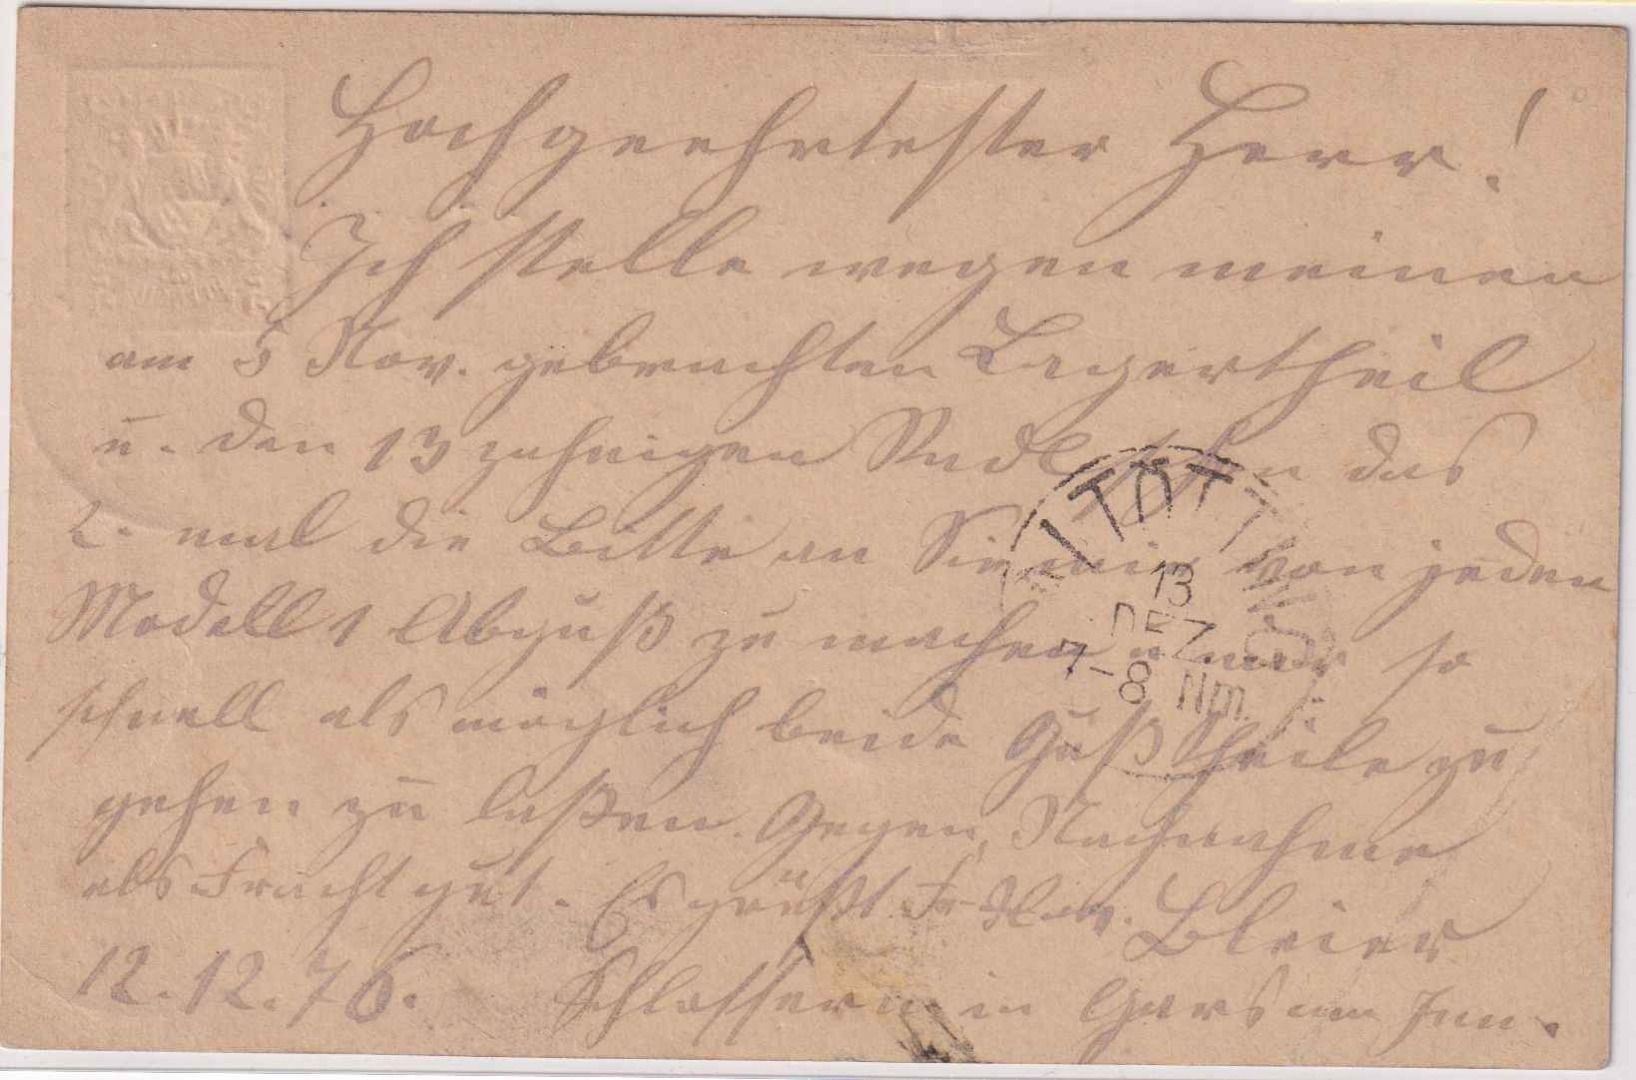 Hochgeehrtester Herr!
Ich stelle wegen meinen
am 5 Nov. gebrachten Lagertheil
u. den 13 zahnigen Radl schon das
2. mal die Bitte an Sie mir von jeden
Modell 1 Abguß zu machen u. mir so
schnell als möglich beide Gußtheile zu
gehen zu laßen. Gegen Nachnahme
als Frachtgut. Es grüßt Fr. Xav. Bleier
12.12.76. Schlosser in Gars am Inn.
ALTÖTTING
13
DEZ
7-8 Nm.